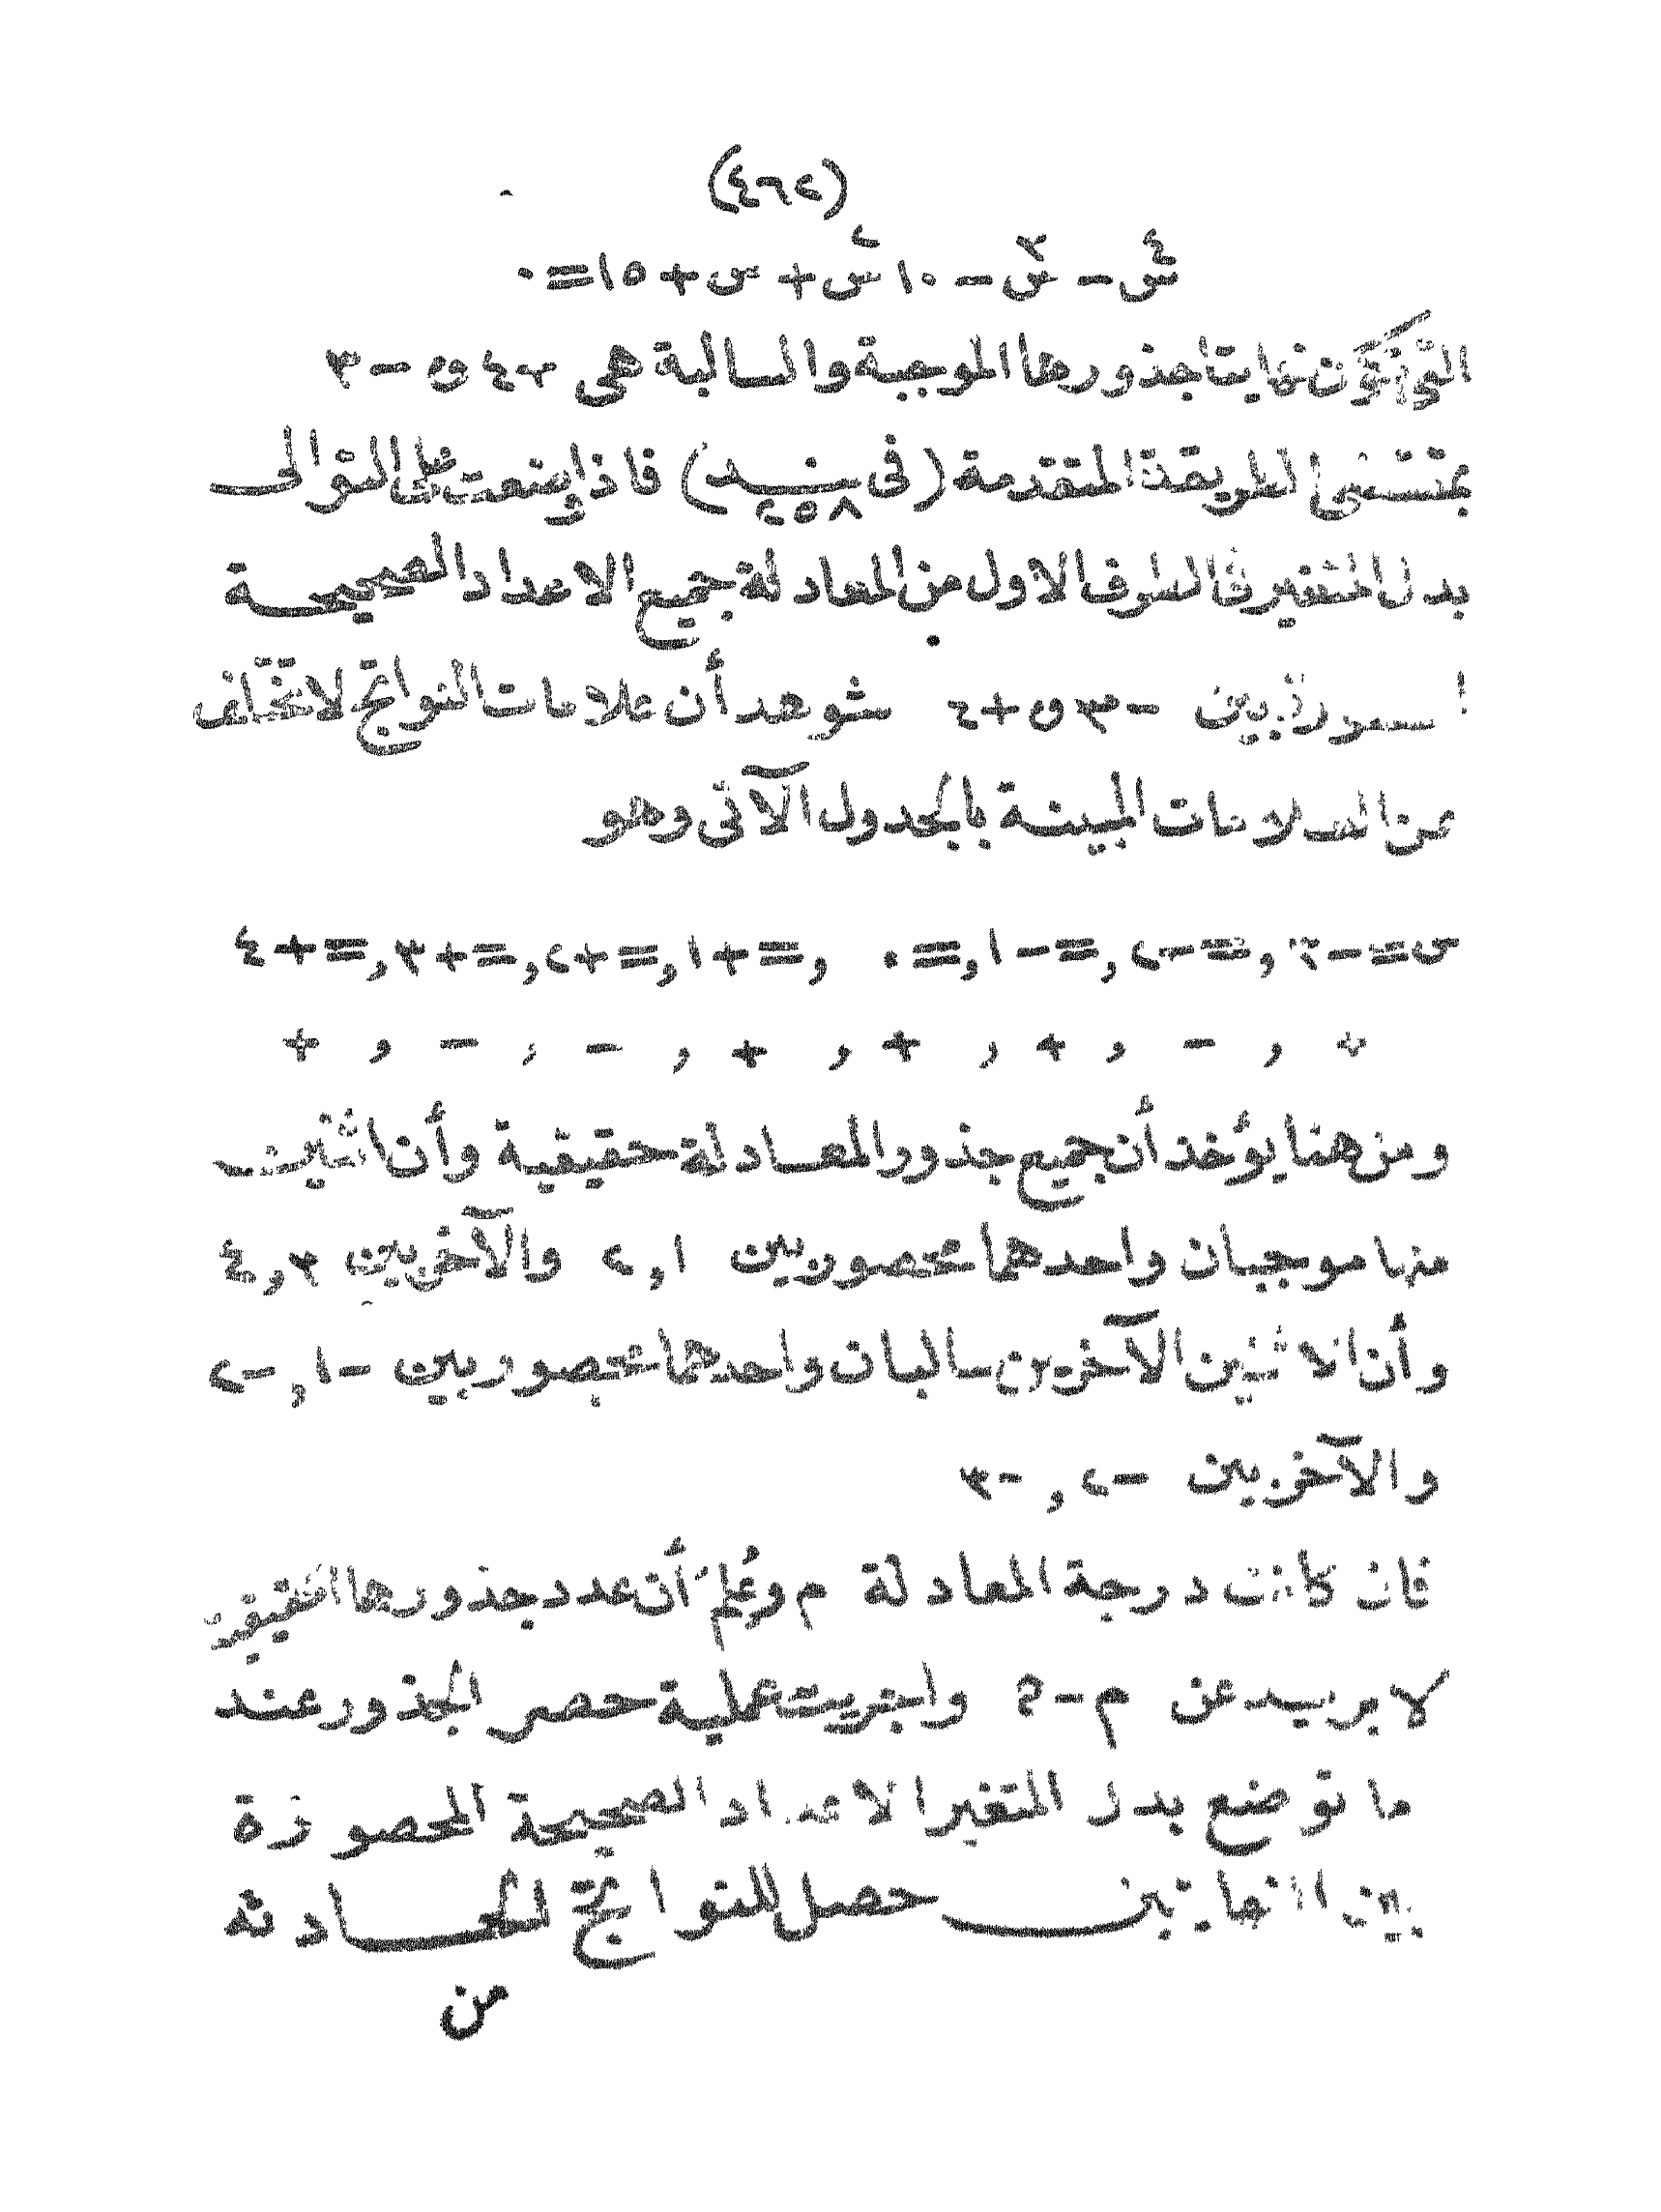 (٤٦٢)
س٤ - س٣ - ١٠ س٢ + س + ١٥ = ٠
التي تكون نهايتا جذورها الموجبة والسالبة هى + ٤ و - ٣
بمقتضى الطريقة المتقدمة (فى بند ٢٥٨) فاذا وضعت على التوالى
بدل المتغير فى الطرف الاول من المعادلة جميع الاعداد الصحيحة
المحصورة بين - ٣ و + ٤ شوهد أن علامات النواتج لا تختلف
عن العلامات المبينة بالجدول الآتى وهو
س = - ٣ , = - ٢ , = - ١ , = ٠ , = + ١ , = + ٢ , = + ٣ , = + ٤
+ , - , + , + , + , - , - , +
ومن هنا يؤخذ أن جميع جذور المعادلة حقيقية وأن اثنين
منها موجبان واحدهما محصور بين ١ , ٢ والآخر بين ٣ , ٤
وأن الاثنين الآخرين سالبان واحدهما محصور بين - ١ , - ٢
والآخر بين - ٢ , - ٣
فان كانت درجة المعادلة م وعُلم أن عدد جذورها الحقيقية
لا يزيد عن م - ٢ واجريت عملية حصر الجذور عند
ما توضع بدل المتغير الاعداد الصحيحة المحصورة
بين النهايتين حصل للنواتج الحادثه
من